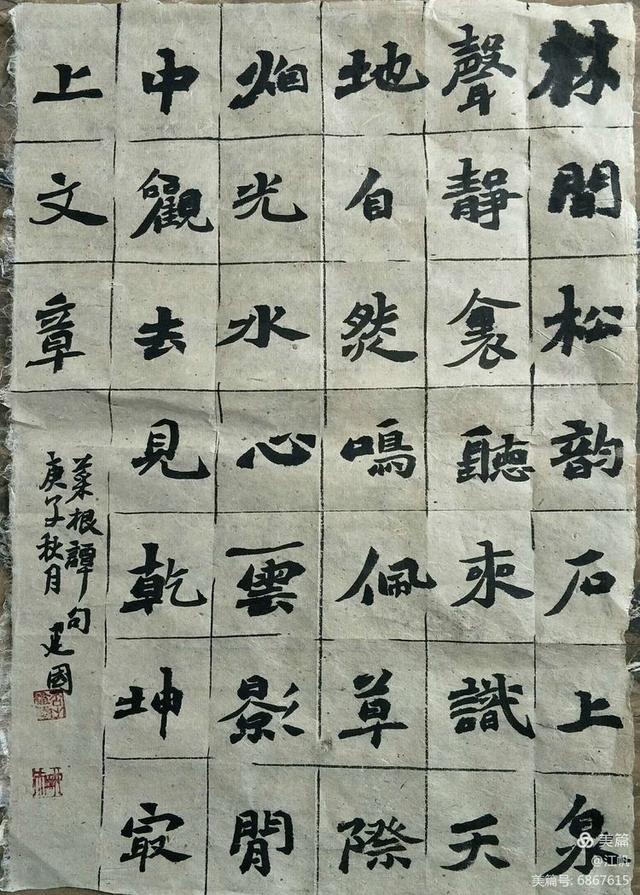 林間松韵石上泉
聲靜裏聽來識天
地自然鳴佩草際
烟光水心雲影閒
中觀去見乾坤最
上文章
菜根譚句
庚子秋月 建國
美篇
@江帆
美篇号: 6867615